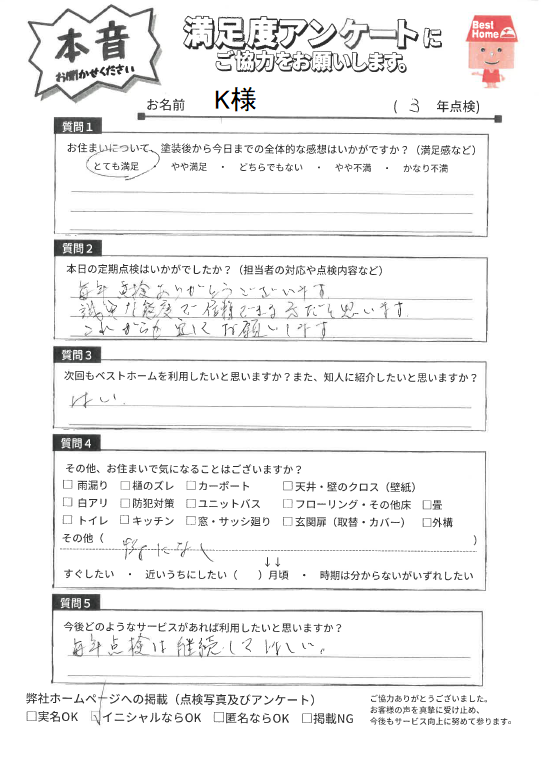 本音
お聞かせください
満足度アンケートに
ご協力をお願いします。
Best Home
お名前 K様 ( 3 年点検)
質問1
お住まいについて、塗装後から今日までの全体的な感想はいかがですか？（満足感など）
とても満足 ・ やや満足 ・ どちらでもない ・ やや不満 ・ かなり不満
質問2
本日の定期点検はいかがでしたか？（担当者の対応や点検内容など）
毎年 点検ありがとうございます。
誠実な態度で信頼できる方だと思います。
これからも宜しくお願いします
質問3
次回もベストホームを利用したいと思いますか？また、知人に紹介したいと思いますか？
はい.
質問4
その他、お住まいで気になることはございますか？
□ 雨漏り □樋のズレ □カーポート □天井・壁のクロス（壁紙）
□ 白アリ □防犯対策 □ユニットバス □フローリング・その他床 □畳
□ トイレ □キッチン □窓・サッシ廻り □玄関扉（取替・カバー） □外構
その他（ 特になし ）
↓↓
すぐしたい ・ 近いうちにしたい（ ）月頃 ・ 時期は分からないがいずれしたい
質問5
今後どのようなサービスがあれば利用したいと思いますか？
毎年点検は継続してほしい。
弊社ホームページへの掲載（点検写真及びアンケート）
□実名OK ☑イニシャルならOK □匿名ならOK □掲載NG
ご協力ありがとうございました。
お客様の声を真摯に受け止め、
今後もサービス向上に努めて参ります。